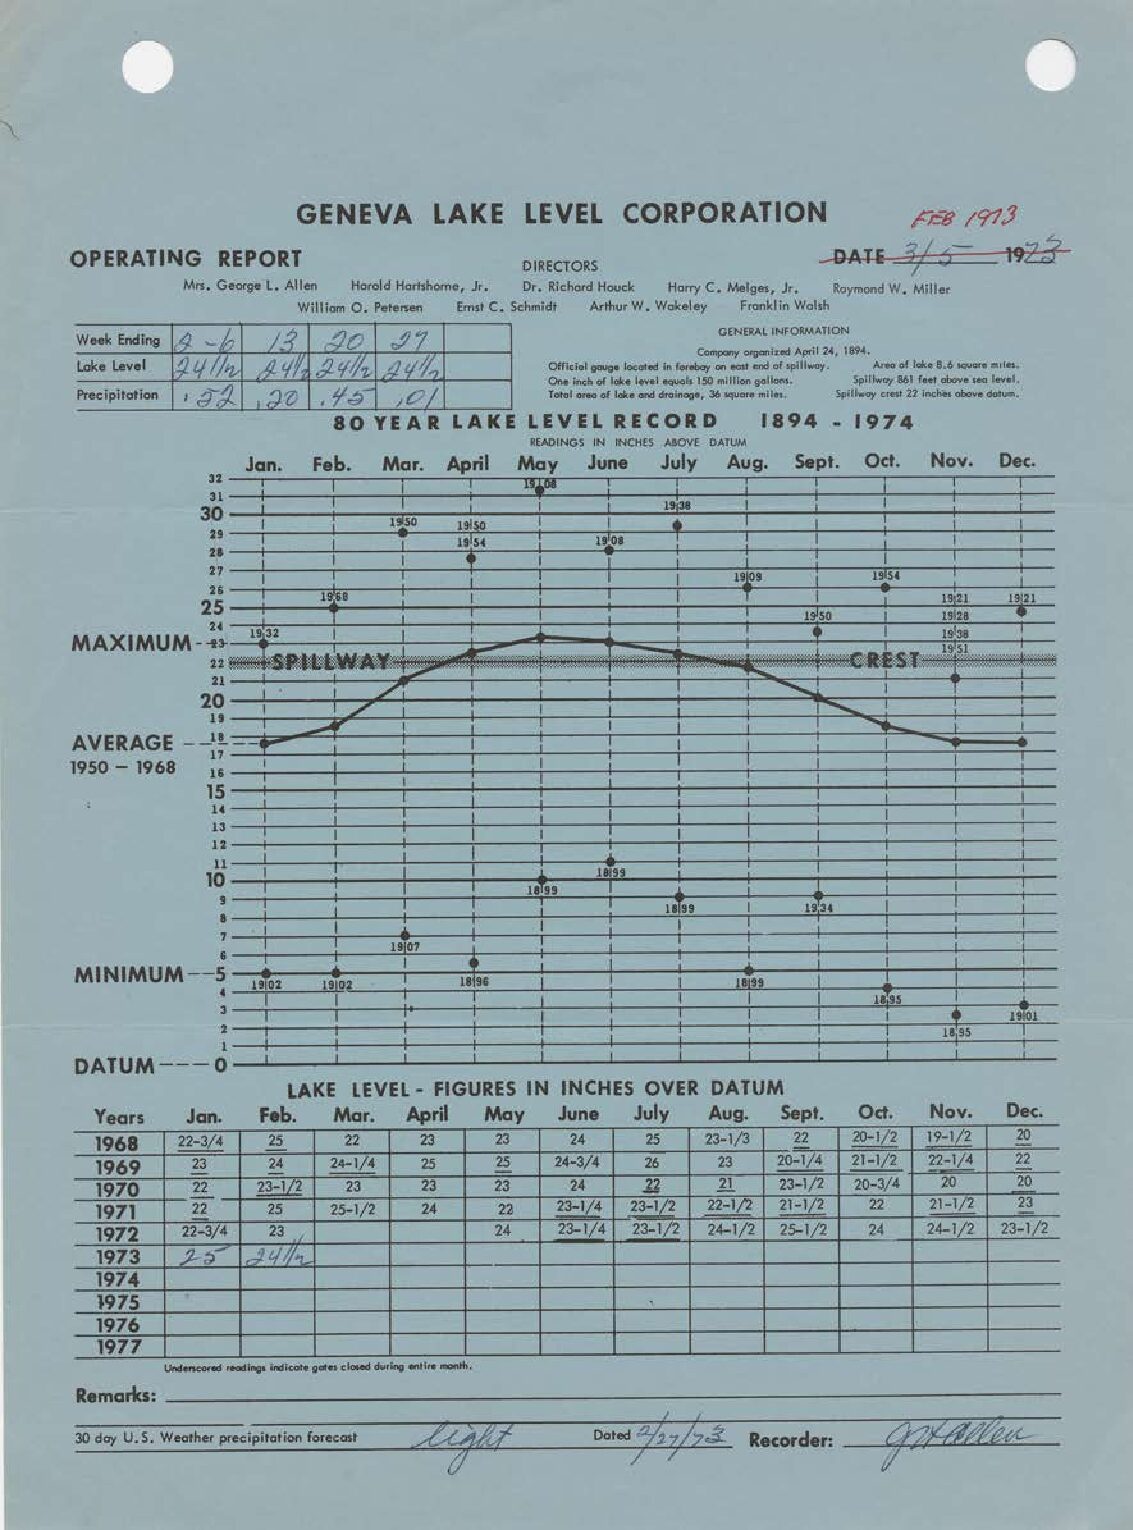 GENEVA LAKE LEVEL CORPORATION
FEB 1973
OPERATING REPORT
DIRECTORS
DATE 3/5 1973
Mrs. George L. Allen Harold Hartshorne, Jr. Dr. Richard Houck Harry C. Melges, Jr. Raymond W. Miller
William O. Petersen Ernst C. Schmidt Arthur W. Wakeley Franklin Walsh
Week Ending 2-6 13 20 27
Lake Level 24 1/2 24 1/2 24 1/2 24 1/2
Precipitation .52 .20 .45 .01
GENERAL INFORMATION
Company organized April 24, 1894.
Official gauge located in forebay on east end of spillway. Area of lake 8.6 square miles.
One inch of lake level equals 150 million gallons. Spillway 861 feet above sea level.
Total area of lake and drainage, 36 square miles. Spillway crest 22 inches above datum.
80 YEAR LAKE LEVEL RECORD 1894 - 1974
READINGS IN INCHES ABOVE DATUM
Jan. Feb. Mar. April May June July Aug. Sept. Oct. Nov. Dec.
32
1908
31
1938
30
1950 1950
29
1954 1908
28
27
1909 1954
26
1968 1921 1921
25
1950 1928
24
1932 1938
MAXIMUM 23
1951
22 SPILLWAY CREST
21
20
19
AVERAGE 18
17
1950 - 1968
16
15
14
13
12
11
1899
10
1899
9
1899 1934
8
7
1907
6
MINIMUM 5
1902 1902 1896 1899
4
1895
3
1901
2
1895
1
DATUM 0
LAKE LEVEL - FIGURES IN INCHES OVER DATUM
Years Jan. Feb. Mar. April May June July Aug. Sept. Oct. Nov. Dec.
1968 22-3/4 25 22 23 23 24 25 23-1/3 22 20-1/2 19-1/2 20
1969 23 24 24-1/4 25 25 24-3/4 26 23 20-1/4 21-1/2 22-1/4 22
1970 22 23-1/2 23 23 23 24 22 21 23-1/2 20-3/4 20 20
1971 22 25 25-1/2 24 22 23-1/4 23-1/2 22-1/2 21-1/2 22 21-1/2 23
1972 22-3/4 23 24 23-1/4 23-1/2 24-1/2 25-1/2 24 24-1/2 23-1/2
1973 25 24 1/2
1974
1975
1976
1977
Underscored readings indicate gates closed during entire month.
Remarks:
30 day U.S. Weather precipitation forecast light Dated 2/27/73 Recorder: G H Allen